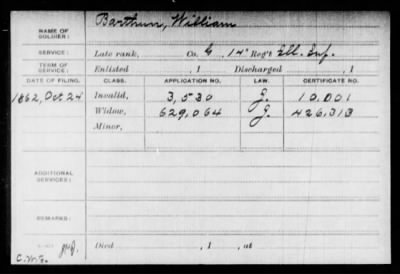 NAME OF SOLDIER: Barthun, William
SERVICE: Late rank, Co. G, 14" Reg't Ill. Inf.
TERM OF SERVICE: Enlisted , 1 Discharged , 1
DATE OF FILING. CLASS. APPLICATION NO. LAW. CERTIFICATE NO.
1862, Oct 24 Invalid, 3,530 J. 10,001
Widow, 629,064 J. 426,313
Minor,
ADDITIONAL SERVICES:
REMARKS:
Died , 1 , at